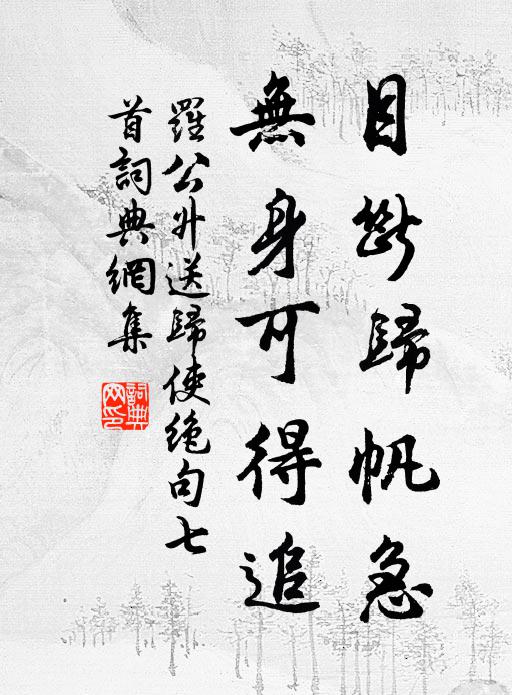 目斷歸帆急
無身可得追
羅公升送歸使絶句七
首詞典網集
詞典網印